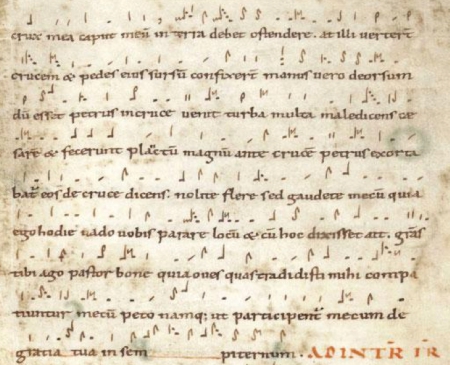 crux mea caput meū in terra debet ostendere. at illi verterȳt
crucem & pedes eius sursū confixerȳt manus vero deorsum
dū esset petrus in cruce venit turba multa maledicens ce
sare & fecerunt planctū magnū ante crucē petrus exorta
bat eos de cruce dicens. nolite flere sed gaudete mecū quia
ego hodie vado vobis parare locū & cū hoc dixisset att. grās
tibi ago pastor bone quia oves quas tradidisti mihi compa
tiuntur mecū peto namq; ut participent mecum de
gratia tua in sem piternum. AD INTR̄